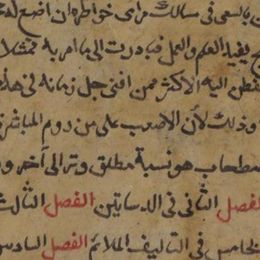 بالسعى فى سالك مراى خواطره ان اضع له
يفيد العلم والعمل فبادرت الى ما امر به ممتثلا
يفطن اليه الاكثر ممن افنى جل زمانه فى هذه
وذلك لأن الاصعب على من دوم المباشرة
اصطحاب هو نسبة مطلق وتر الى آخر
الفصل الثانى فى الدساتين الفصل الثالث
الخامس فى التاليف الملائم الفصل السادس